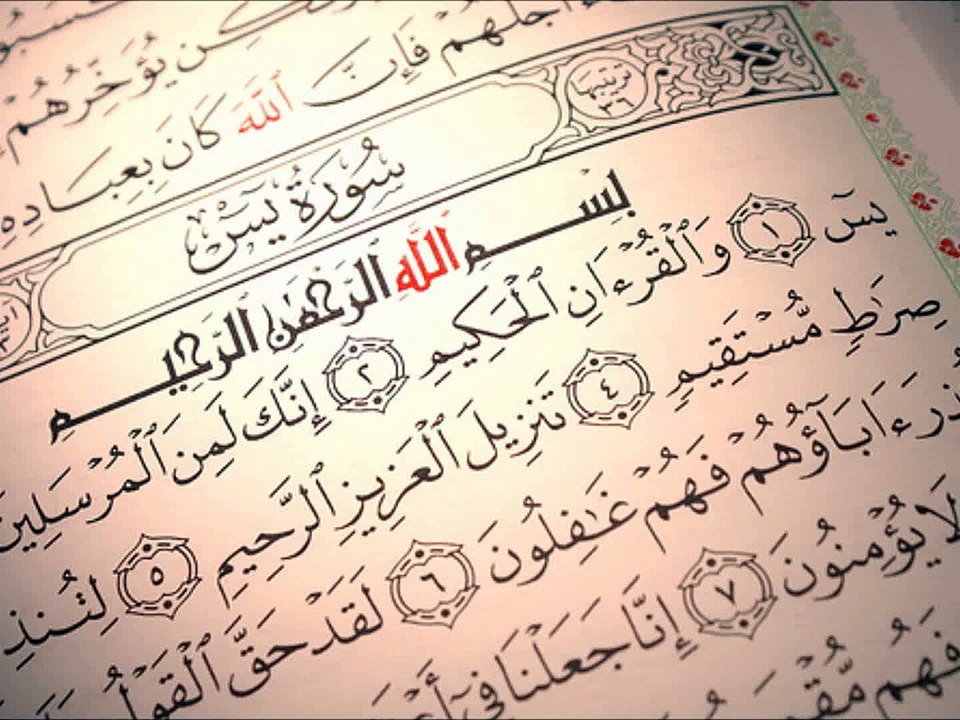 ـكِن يُؤَخِّرُهُمْ
أَجَلُهُمْ فَإِنَّ ٱللَّهَ كَانَ بِعِبَادِهِ
ترتيبها ٣٦ سُورَةُ يسٓ
بِسْمِ ٱللَّهِ ٱلرَّحْمَٰنِ ٱلرَّحِيمِ
يسٓ ١ وَٱلْقُرْءَانِ ٱلْحَكِيمِ ٢ إِنَّكَ لَمِنَ ٱلْمُرْسَلِين
صِرَٰطٍ مُّسْتَقِيمٍ ٤ تَنزِيلَ ٱلْعَزِيزِ ٱلرَّحِيمِ ٥ لِتُنذِ
ـذِرَ ءَابَآؤُهُمْ فَهُمْ غَٰفِلُونَ ٦ لَقَدْ حَقَّ ٱلْقَوْلُ
لَا يُؤْمِنُونَ ٧ إِنَّا جَعَلْنَا فِىٓ أَعْ
فَهُم مُّقْمَ